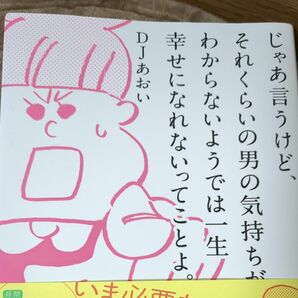 じゃあ言うけど、
それくらいの男の気持ちが
わからないようでは一生
幸せになれないってことよ。
DJあおい
いま必要